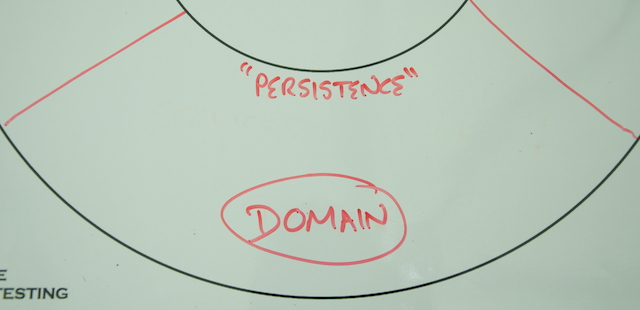 "PERSISTENCE"
DOMAIN
E
TESTING